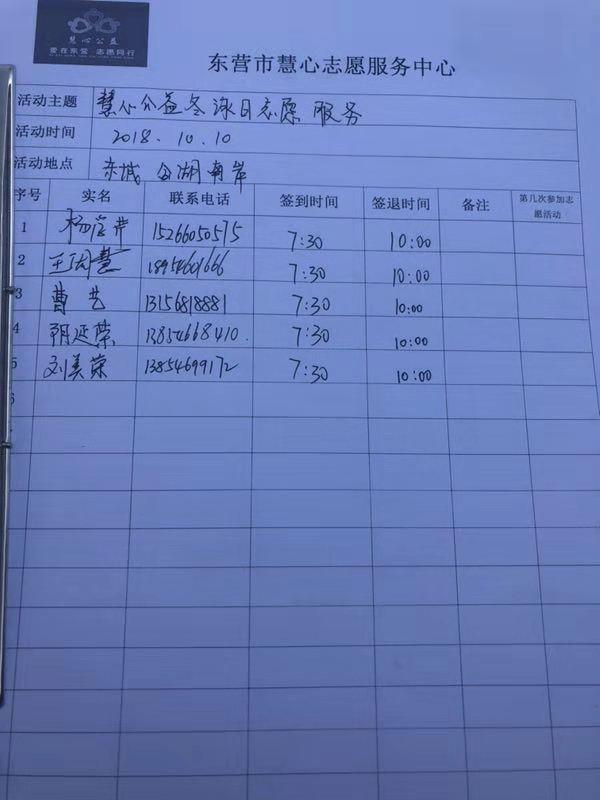 慧心公益
爱在东营 志愿同行
东营市慧心志愿服务中心
活动主题 慧心公益冬泳日志愿服务
活动时间 2018.10.10
活动地点 东城 湖南岸
序号 实名 联系电话 签到时间 签退时间 备注 第几次参加志愿活动
1 杨 15266050575 7:30 10:00
2 王 慧 18954601666 7:30 10:00
3 曹艺 13156818881 7:30 10:00
4 阴延荣 13854668410. 7:30 10:00
5 刘美荣 13854699172 7:30 10:00
6